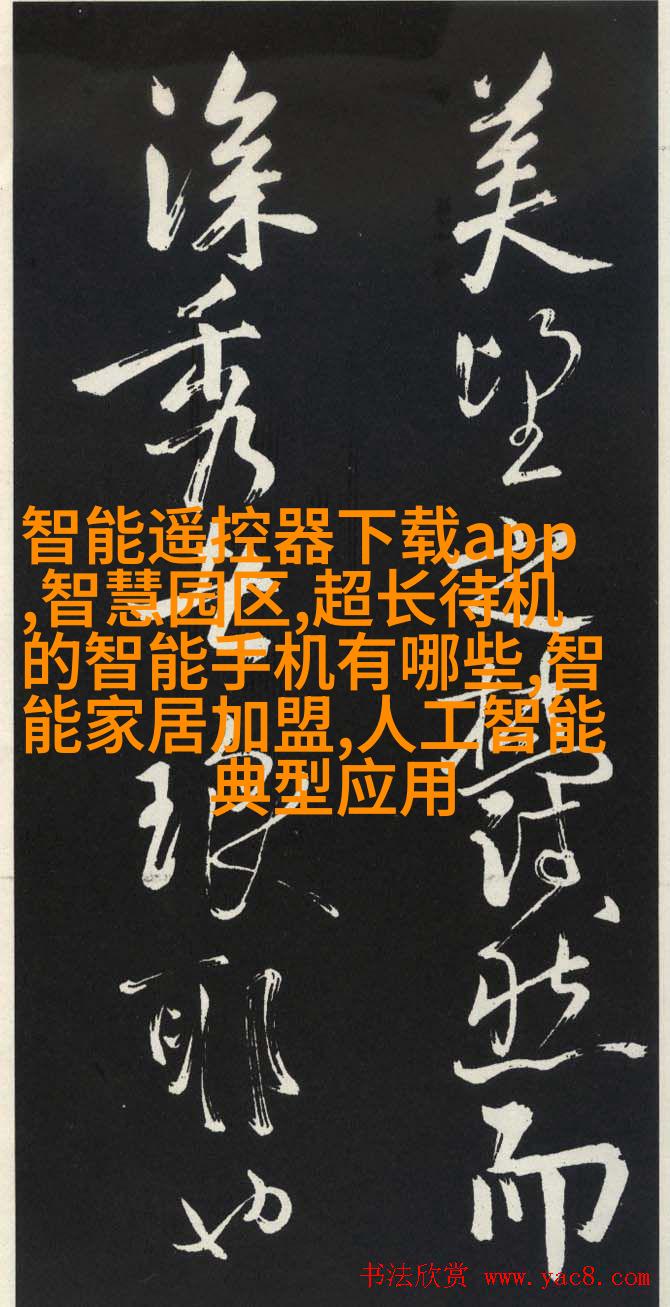 美望之蔚然而
深秀者琅耶也
智能遥控器下载app
,智慧园区,超长待机
的智能手机有哪些,智
能家居加盟,人工智能
典型应用
书法欣赏 www.yac8.com